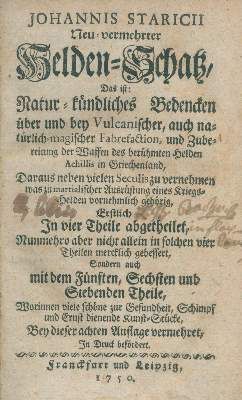 JOHANNIS STARICII
Neu-vermehrter
Helden-Schatz,
Das ist:
Natur-kündliches Bedencken
über und bey Vulcanischer, auch na-
türlich-magischer Fabrefaction, und Zube-
reitung der Waffen des berühmten Helden
Achillis in Griechenland,
Daraus neben vielen Seculis zu vernehmen
was zu martialischer Ausrüstung eines Kriegs-
Helden vornehmlich gehörig,
Erstlich
In vier Theile abgetheilet,
Nunmehro aber nicht allein in solchen vier
Theilen mercklich gebessert,
Sondern auch
mit dem Fünften, Sechsten und
Siebenden Theile,
Worinnen viele schöne zur Gesundheit, Schimpf
und Ernst dienende Kunst-Stücke,
Bey dieser achten Auflage vermehret,
In Druck befördert.
Franckfurt und Leipzig,
1750.